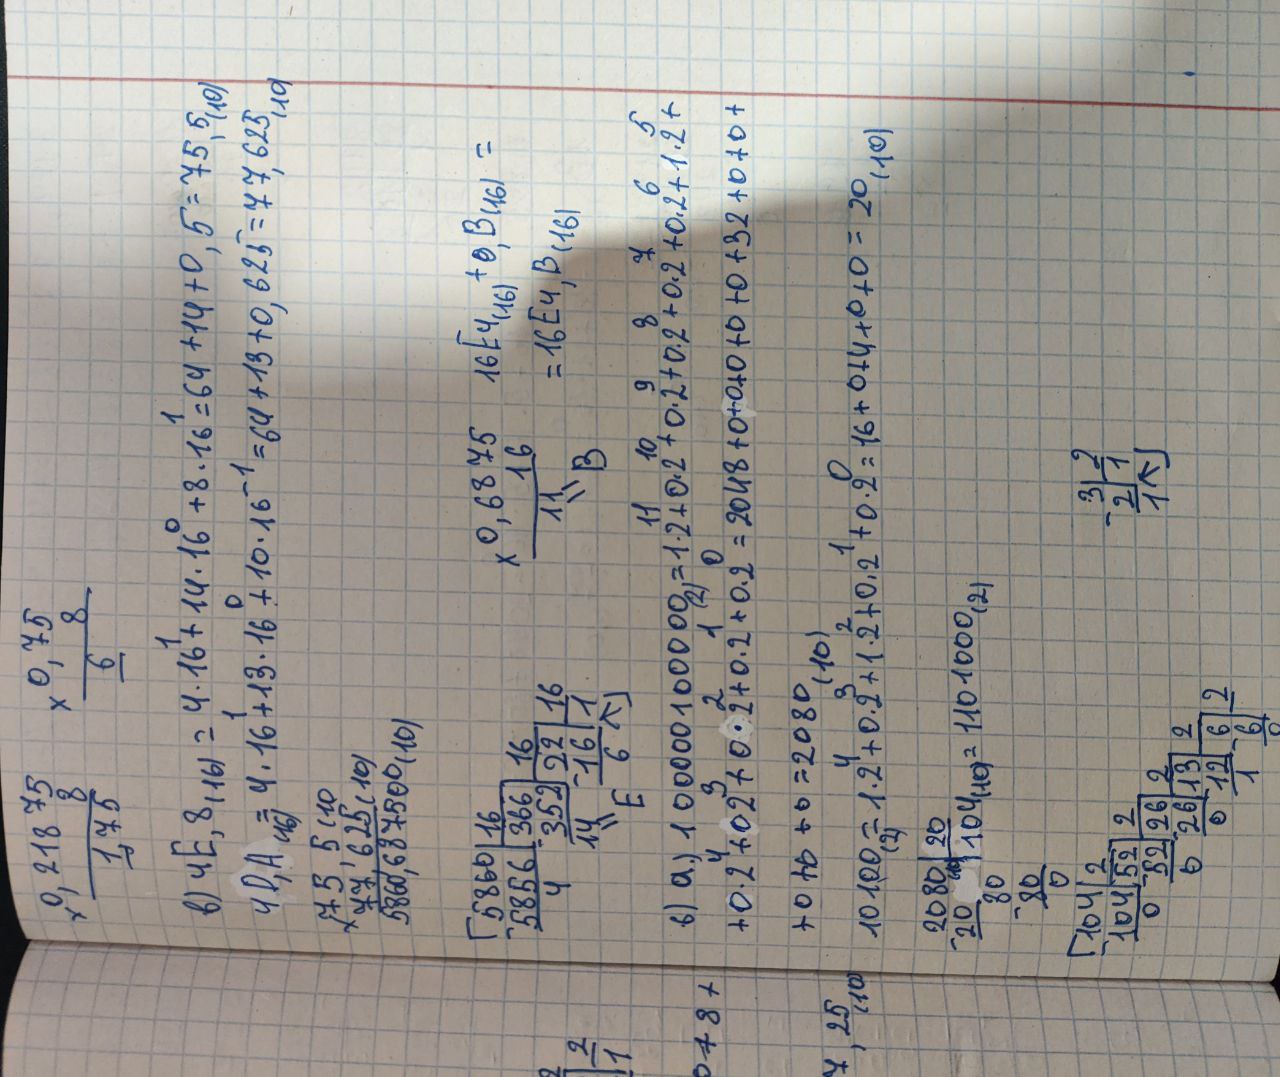 ×0,21875
8
1,75
×0,75
8
6
в) 4E,8(16) = 4·16¹ + 14·16⁰ + 8·16¹ = 64+14+0,5 = 75,5(10)
4D,A(16) = 4·16¹ + 13·16⁰ + 10·16⁻¹ = 64+13+0,625 = 77,625(10)
×75,5(10
77,625(10)
5860,687500(10)
5860 16
5856 366 16
4 352 22 16
14 16 1
E 6
×0,6875
16
11
B
16E4(16) + 0,B(16) =
= 16E4,B(16)
в) а) 100000100000(2) = 1·2¹¹+0·2¹⁰+0·2⁹+0·2⁸+0·2⁷+0·2⁶+1·2⁵+
+0·2⁴+02³+0·2²+0·2¹+0·2⁰ = 2048+0+0+0+0+0+32+0+0+
+0+0+0=2080(10)
10100(2)=1·2⁴+0·2³+1·2²+0·2¹+0·2⁰=16+0+4+0+0=20(10)
2080 20
20 104(10) = 1101000(2)
80
80
0
104 2
104 52 2
0 52 26 2
0 26 13 2
0 12 6 2
1 6
0
3 2
2 1
1
0+8+
7,25(10
2
1